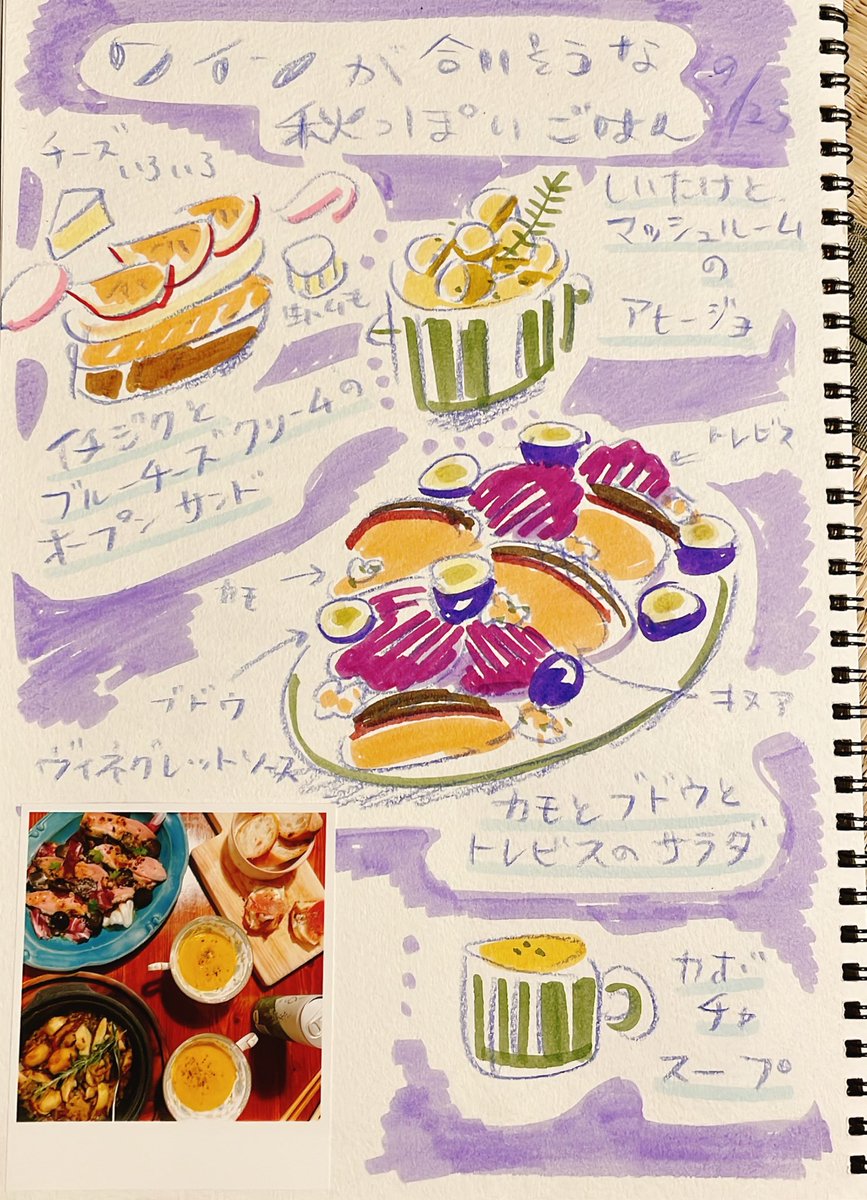 ワインが合いそうな
秋っぽいごはん
9/23
チーズ
いろいろ
生ハムも
イチジクと
ブルーチーズクリームの
オープンサンド
しいたけと
マッシュルーム
の
アヒージョ
トレビス
カモ
ブドウ
キヌア
ヴィネグレットソース
カモとブドウと
トレビスのサラダ
カボ
チャ
スープ